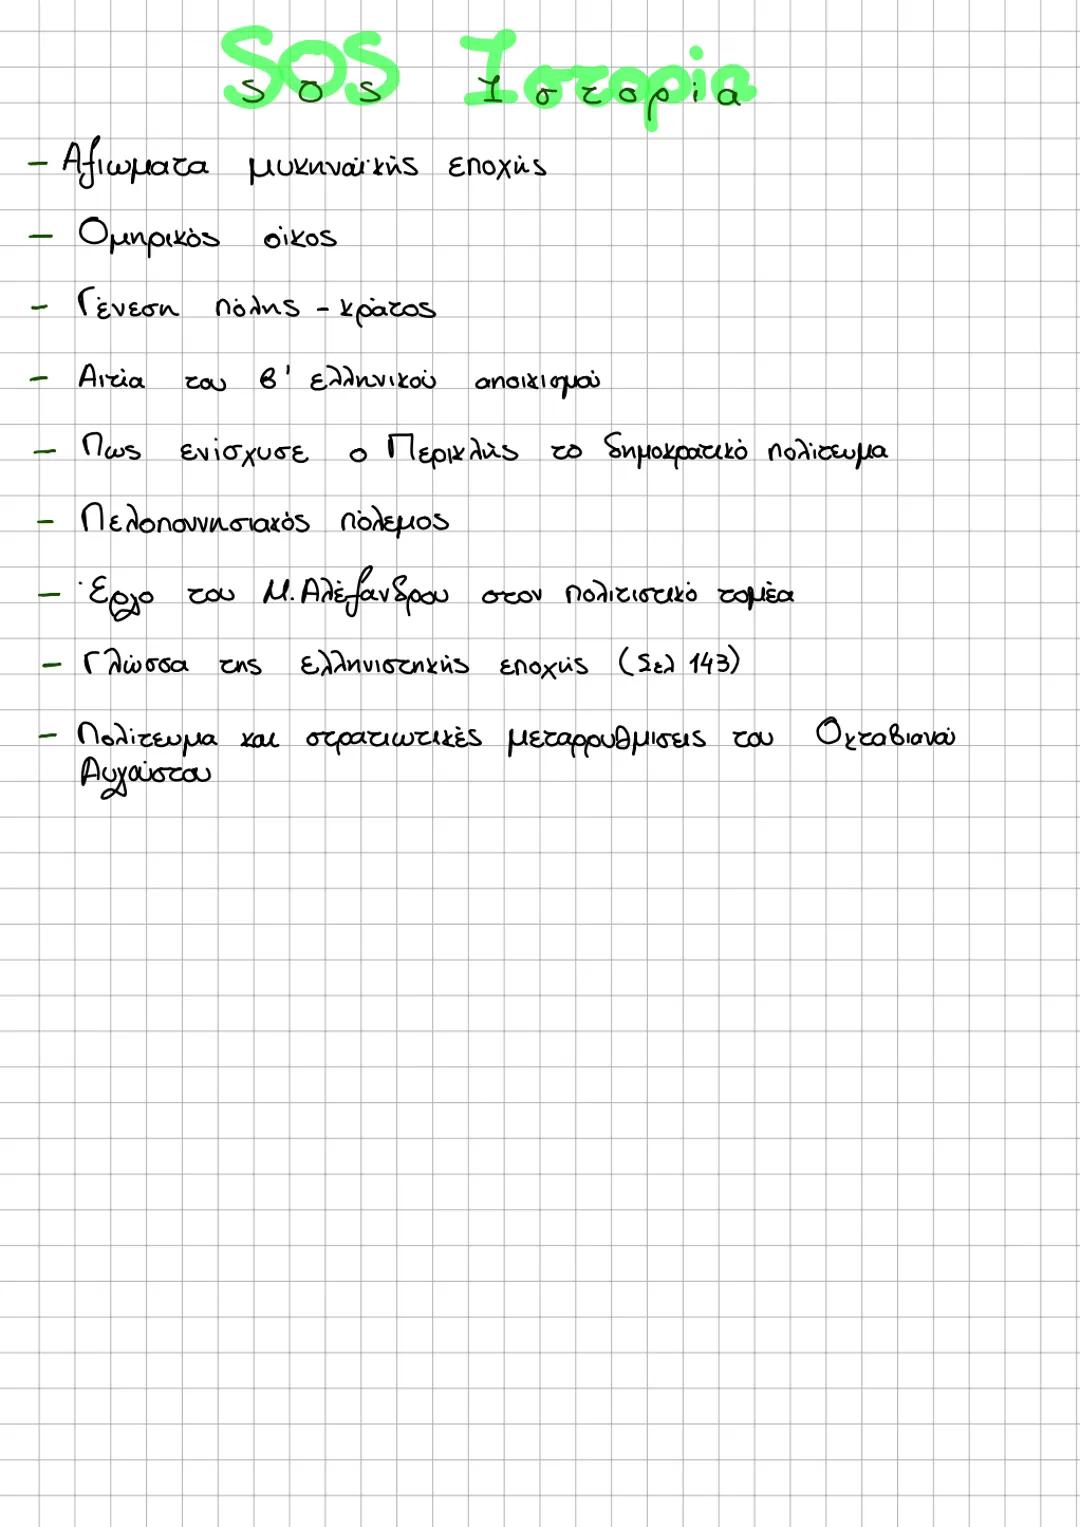 SOS Ιστορία
- Αξιωματα μυκηναϊκής εποχής
- Ομηρικός οίκος
- Γένεση πόλης - κράτος
- Αιτία του β' ελληνικού αποικισμού
- Πως ενίσχυσε ο Περικλής το δημοκρατικό πολίτευμα
- Πελοποννησιακός πόλεμος
- Έργο του Μ. Αλέξανδρου στον πολιτιστικό τομέα
- Γλώσσα της ελληνιστηκής εποχής (Σελ 143)
- Πολίτευμα και στρατιωτικές μεταρρυθμισεις του Οκταβιανού
Αυγούστου